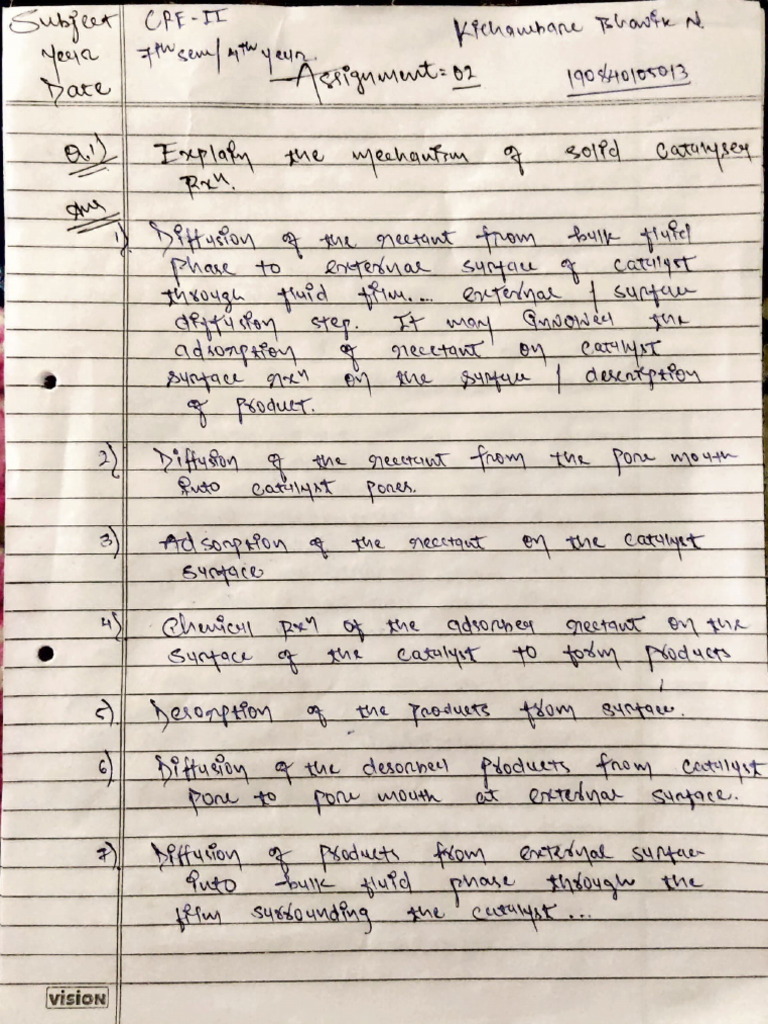 Subject CRE-II Kichambare Bhavik N.
Year 7th sem/4th year
Date Assignment: 02 190840105013
Q.1) Explain the mechanism of solid catalysed
Rxn.
Ans
1) Diffusion of the rectant from bulk fluid
phase to external surface of catalyst
through fluid film.... external / surface
diffusion step. It may involved the
adsorption of recctant on catalyst
surface rxn on the surface / description
of product.
2) Diffusion of the rectant from the pore mouth
into catalyst pores.
3) Adsorption of the recctant on the catalyst
surface
4) Chemical Rxn of the adsorbed rectant on the
surface of the catalyst to form products
5) Desorption of the products from surface.
6) Diffusion of the desorbed products from catalyst
pore to pore mouth at external surface.
7) Diffusion of products from external surface
into bulk fluid phase through the
film surrounding the catalyst...
vision